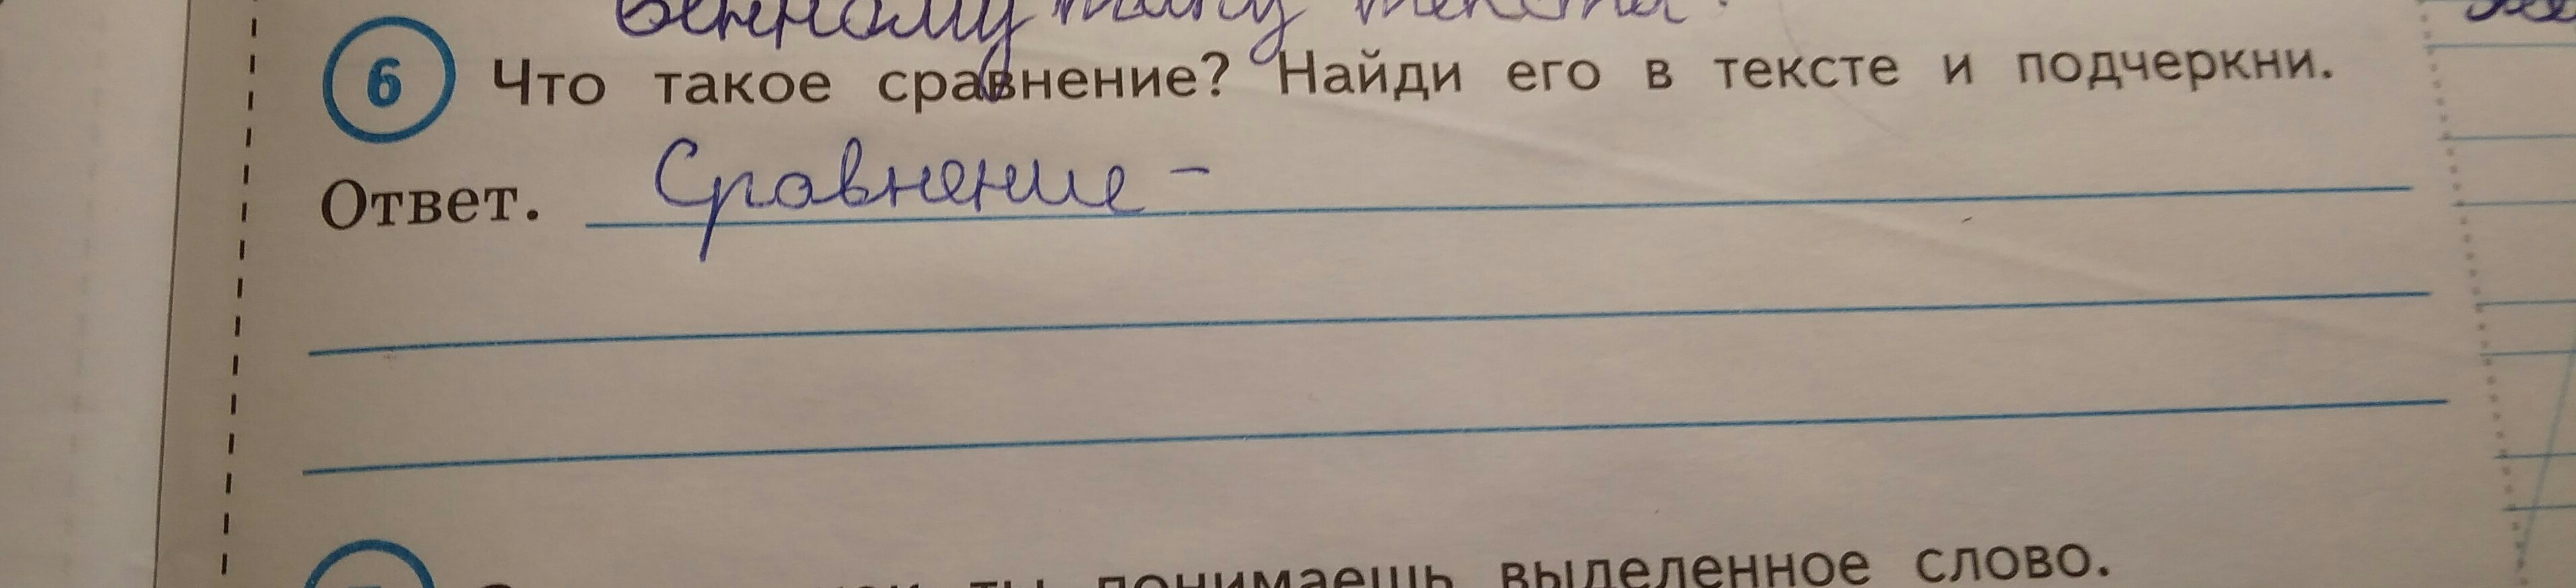 6 Что такое сравнение? Найди его в тексте и подчеркни.
Ответ. Сравнение -
ты понимаешь выделенное слово.